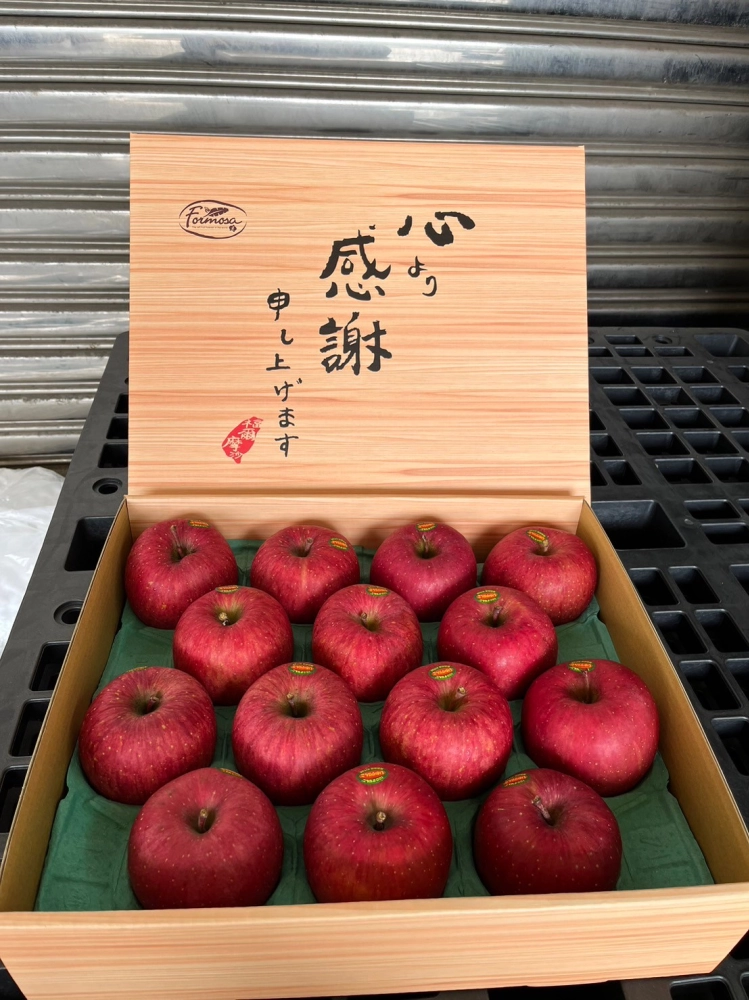 Formosa
心より
感謝
申し上げます
福爾
摩沙